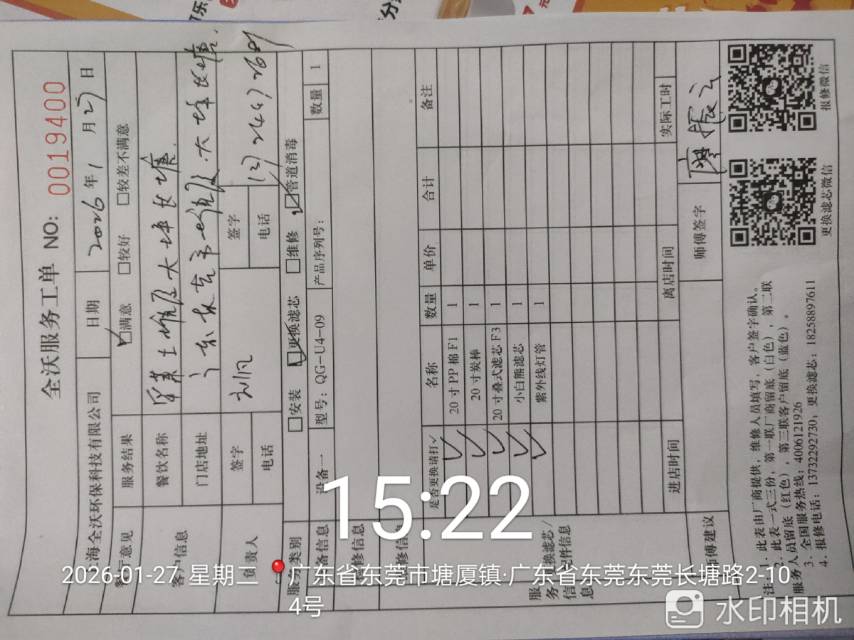 全沃服务工单 NO: 0019400
海全沃环保科技有限公司 日期 2026年1月27日
意见 服务结果 ☑满意 □较好 □较差不满意
客户信息 餐饮名称
门店地址 广东东莞市
负责人 签字 签字
电话 电话
服务类别 □安装 ☑更换滤芯 □维修 ☑管道消毒
备信息 设备一 型号: QG-U4-09 产品序列号: 数量 1
修信息
维修信息
更换滤芯/
配件信息
是否更换请打✓ 名称 数量 单价 合计 备注
✓ 20寸PP棉F1 1
✓ 20寸炭棒 1
✓ 20寸叠式滤芯F3 1
✓ 小白熊滤芯 1
✓ 紫外线灯管 1
进店时间 离店时间 实际工时
师傅建议 师傅签字 廖振云
注: 1. 此表由厂商提供, 维修人员填写, 客户签字确认。
2. 此表一式三份, 第一联厂商留底(白色), 第二联
服务人员留底(红色), 第三联客户留底(蓝色)。
3. 全国服务热线: 4006121926
4. 报修电话: 13732292730, 更换滤芯: 18258897611
更换滤芯微信 报修微信
15:22
2026-01-27 星期二 广东省东莞市塘厦镇·广东省东莞东莞长塘路2-10
4号
水印相机